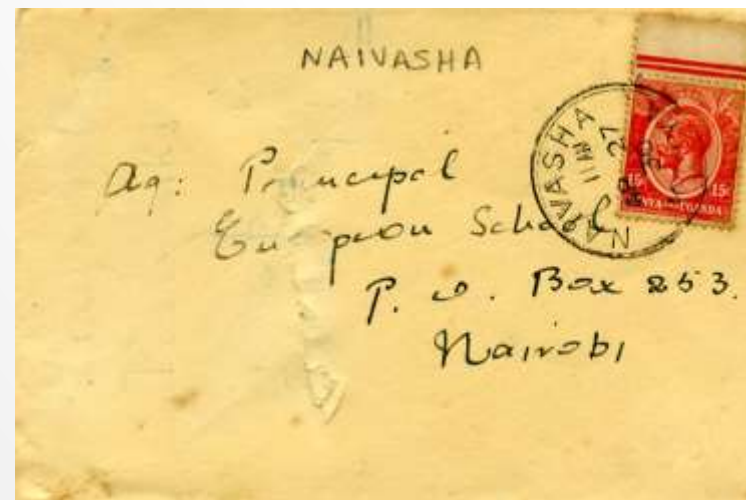 NAIVASHA
Ag: Principal
European School
P. O. Box 253.
Nairobi
NAIVASHA
11 AM
27
15c 15c
KENYA AND UGANDA